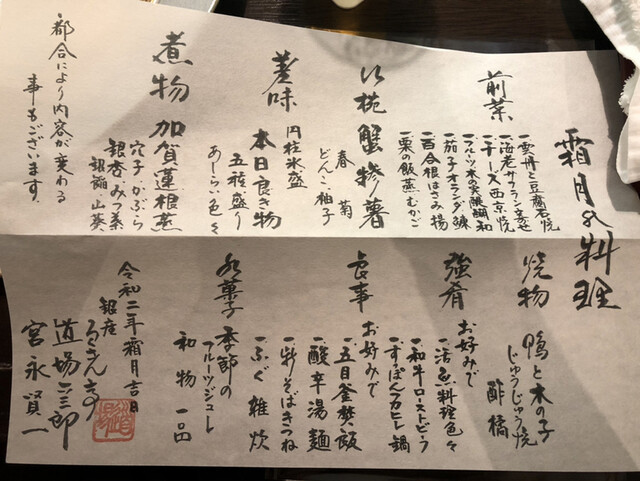 霜月の料理
前菜
一、雲丹と豆腐石焼
一、海老サフラン寄せ
一、チーズ西京焼
一、フルーツ木の実醍醐和
一、茄子オランダ煉
一、百合根はさみ揚
一、栗の飯蒸むかご
沢椀 蟹 薯
春菊
どんこ 柚子
差味 本日良き物
円柱氷盛
五種盛り
あしらい色々
煮物 加賀蓮根蒸
穴子 かぶら
銀杏 みつ葉
銀餡 山葵
都合により内容が変わる
事もございます
焼物 鴨と木の子
じゅうじゅう焼
酢橘
強肴 お好みで
一、活魚料理色々
一、和牛ローストビーフ
一、すっぽんフカヒレ鍋
食事 お好みで
一、五目釜焚飯
一、酸辛湯麺
一、新そばきつね
一、ふぐ雑炊
水菓子 季節の
フルーツジュレ
和物 一品
令和二年霜月吉日
銀座
ろくさん亭
道場六三郎
宮永賢一